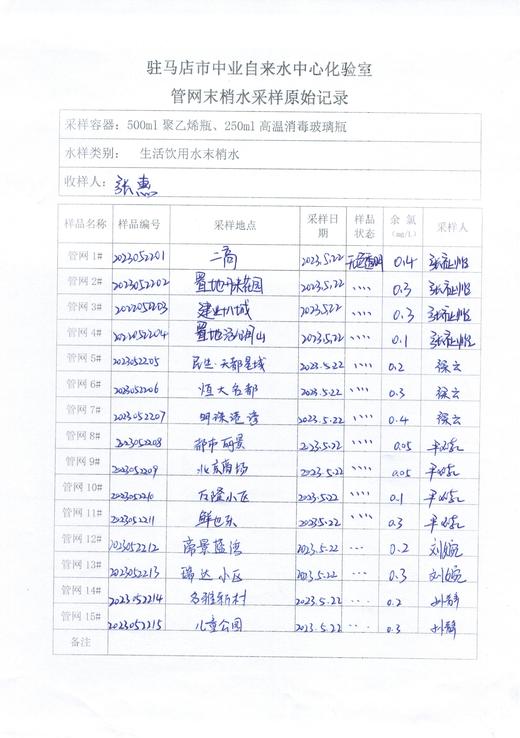 驻马店市中业自来水中心化验室
管网末梢水采样原始记录
采样容器：500ml 聚乙烯瓶、250ml 高温消毒玻璃瓶
水样类别： 生活饮用水末梢水
收样人：张惠
样品名称 样品编号 采样地点 采样日期 样品状态 余氯（mg/L） 采样人
管网 1# 2023052201 二高 2023.5.22 无色透明 0.4
管网 2# 2023052202 置地 花园 2023.5.22 〃 0.3
管网 3# 2022052203 建业 城 2023.5.22 〃 0.3
管网 4# 2022052204 置地 山 2023.5.22 〃 0.1
管网 5# 2023052205 民生·天都星城 2023.5.22 〃 0.2 徐云
管网 6# 2023052206 恒大名都 2023.5.22 〃 0.3 徐云
管网 7# 2023052207 明珠港湾 2023.5.22 〃 0.4 徐云
管网 8# 2023052208 都市丽景 2023.5.22 〃 0.05
管网 9# 2023052209 北京商场 2023.5.22 〃 0.05
管网 10# 2023052210 小区 2023.5.22 〃 0.1
管网 11# 2023052211 2023.5.22 〃 0.3
管网 12# 2023052212 帝景蓝湾 2023.5.22 … 0.2 刘婉
管网 13# 2023052213 瑞达小区 2023.5.22 … 0.3 刘婉
管网 14# 2023052214 名雅新村 2023.5.22 … 0.2 刘静
管网 15# 2023052215 儿童公园 2023.5.22 … 0.3 刘静
备注